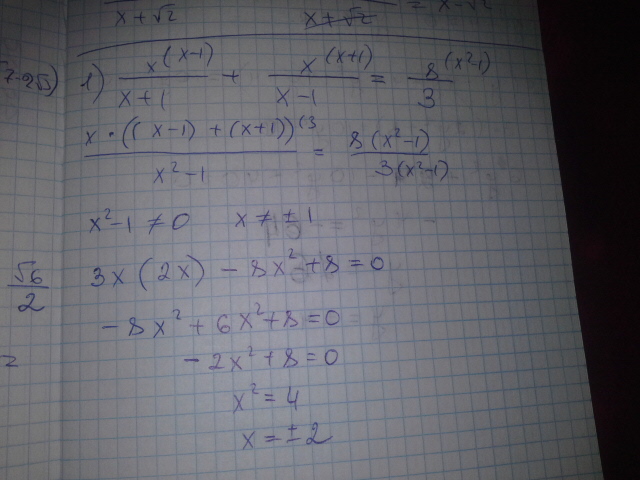 x+√2 x+√2 = x-√2
7-2√3)
1) x^(x-1)/(x+1) + x^(x+1)/(x-1) = 8^(x²-1)/3
x·((x-1)+(x+1))^(3/(x²-1) = 8(x²-1)/3(x²-1)
x²-1≠0 x≠±1
√6/2
3x(2x)-8x²+8=0
-8x²+6x²+8=0
-2x²+8=0
x²=4
x=±2